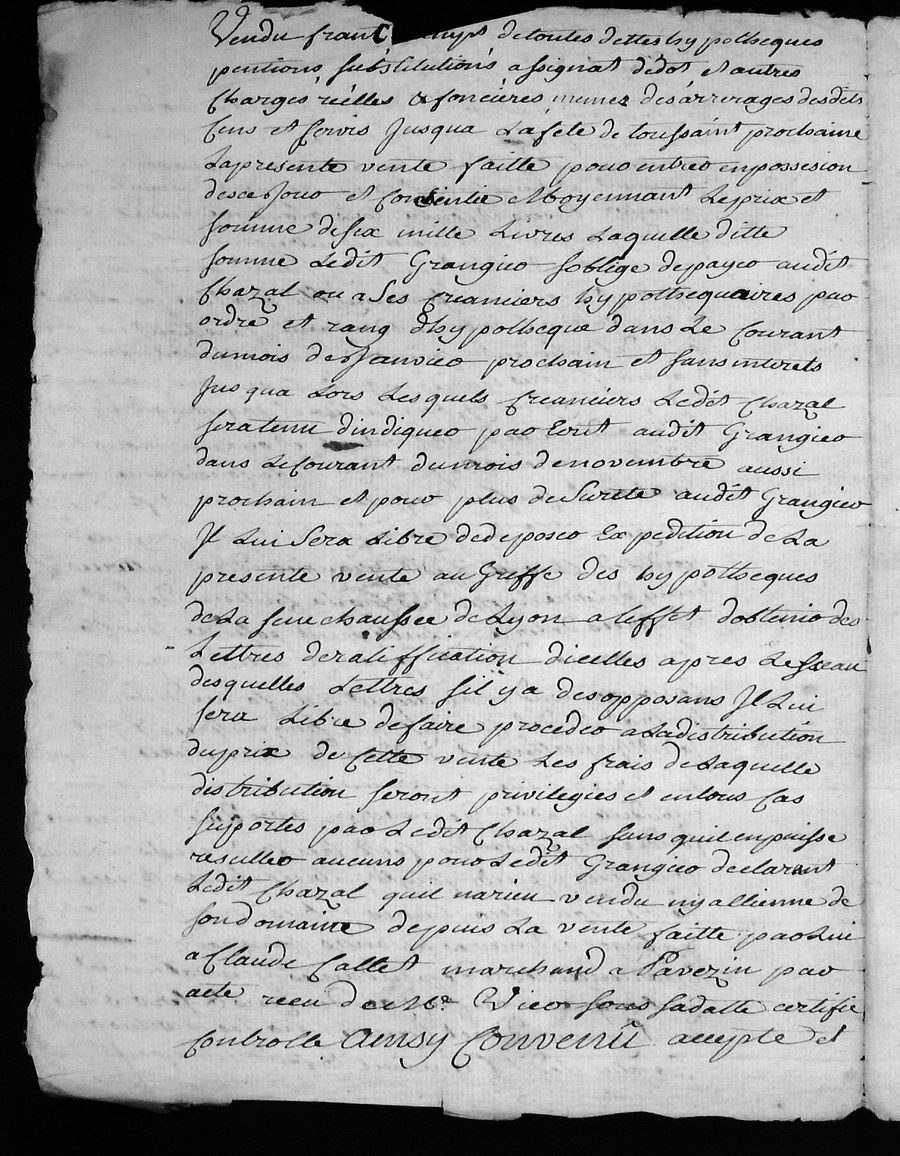 Vendu franc de toutes dettes hypotheques
pentions, substitutions, assignat dedot et autres
Charges réélles & foncières, memes des arrerages desdits
Cens et servis Jusqua La fete de toussaint prochaine
La presente vente faitte pour entrer en possesion
desce Jour et Consentie Moyennant Le prix et
somme de six mille Livres Laquelle ditte
somme Ledit Grangier soblige de payer audit
Chazal ou a Ses Creanciers hypothequaires par
ordre et rang dhypotheque dans Le Courant
du mois de Janvier prochain et sans interets
Jusqua Lors Lesquels Creanciers Ledit Chazal
sera tenu dindiquer par Ecrit audit Grangier
dans Le Courant du mois de novembre aussi
prochain et pour plus de Sureté audit Grangier
Il Lui Sera Libre de deposer Expedition de La
presente vente au Greffe des hypotheques
de La senechaussée de Lyon a leffet dobtenir des
Lettres de ratiffication dicelles apres Le sceau
desquelles Lettres sil y a des opposans Il Lui
sera Libre de faire proceder a La distribution
du prix de Cette vente Les frais de Laquelle
distribution seront privilegies et en tous Cas
suportes par Ledit Chazal sans quil en puisse
resulter aucuns pour Ledit Grangier declarant
Ledit Chazal quil na rien vendu ny allienne de
son domaine depuis La vente faitte par Lui
a Claude Callet marchand a Pavezin par
acte recu de Me. Vier sous sa datte certifie
Controllé Ainsy Convenu accepte et